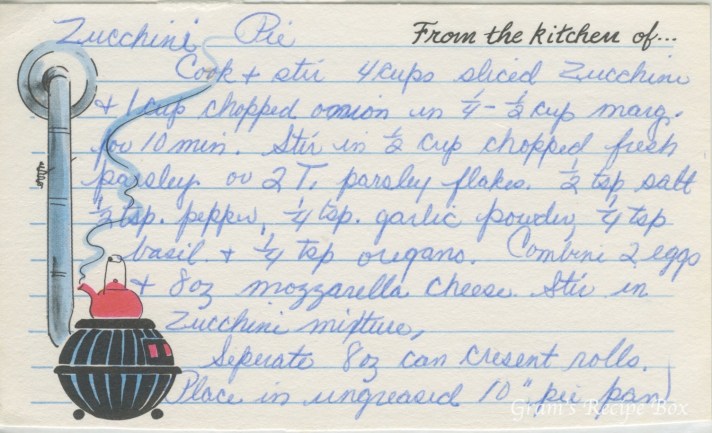 Zucchini Pie
From the kitchen of...
Cook + stir 4 cups sliced Zucchini
+ 1 cup chopped onion in ¼-½ cup marg.
for 10 min. Stir in ½ cup chopped fresh
parsley or 2 T. parsley flakes. ½ tsp salt
½ tsp. pepper, ¼ tsp. garlic powder, ¼ tsp
basil + ¼ tsp oregano. Combine 2 eggs
+ 8oz mozzarella cheese. Stir in
Zucchini mixture,
Seperate 8oz can cresent rolls.
Place in ungreased 10" pie pan)
Gram's Recipe Box